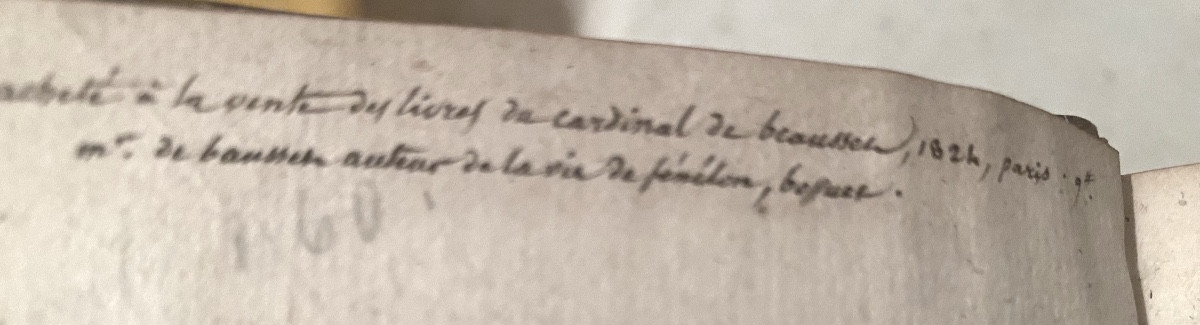 acheté à la vente des livres du cardinal de beausset, 1824, paris. 9#
mr. de bausset auteur de la vie de fénélon,
60